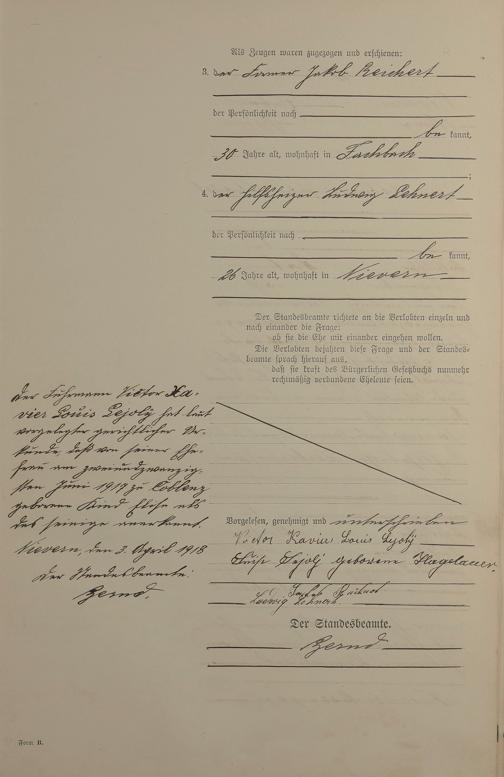 Als Zeugen waren zugezogen und erschienen:
3. der Former Jakob Reichert
der Persönlichkeit nach
be kannt,
30 Jahre alt, wohnhaft in Fachbach
;
4. der Hilfsheizer Ludwig Lehnert
der Persönlichkeit nach
be kannt,
26 Jahre alt, wohnhaft in Nievern
Der Standesbeamte richtete an die Verlobten einzeln und
nach einander die Frage:
ob sie die Ehe mit einander eingehen wollen.
Die Verlobten bejahten diese Frage und der Standes-
beamte sprach hierauf aus,
daß sie kraft des Bürgerlichen Gesetzbuchs nunmehr
rechtmäßig verbundene Eheleute seien.
Der Fuhrmann Victor Xa-
vier Louis Lejoly hat laut
vorgelegter gerichtlicher Ur-
kunde, das von seiner Ehe-
frau am zweiundzwanzig-
sten Juni 1917 zu Coblenz
geborene Kind Elise als
das seinige anerkannt.
Nievern, den 3. April 1918
Der Standesbeamte:
Bernd.
Vorgelesen, genehmigt und unterschrieben
Victor Xavier Louis Lejolÿ
Lejolÿ geborene Hagelauer.
Jakob Reichert
Ludwig Lehnert
Der Standesbeamte.
Bernd
Form B.